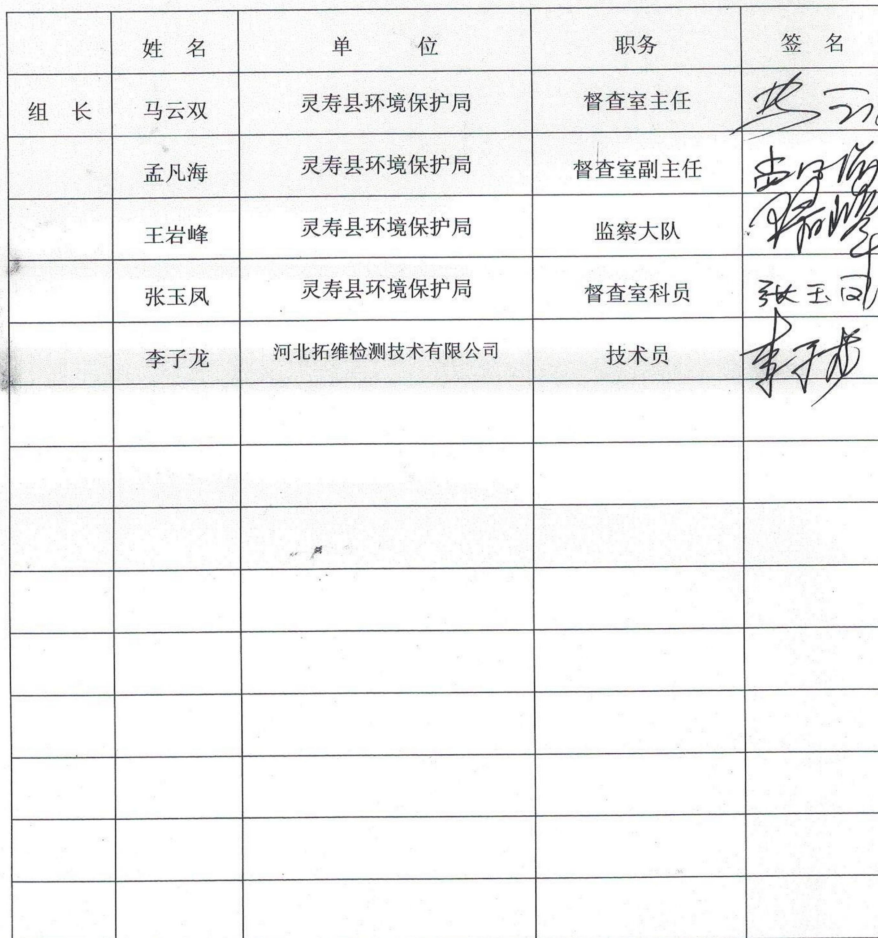 姓 名 单 位 职务 签 名
组 长 马云双 灵寿县环境保护局 督查室主任
孟凡海 灵寿县环境保护局 督查室副主任
王岩峰 灵寿县环境保护局 监察大队
张玉凤 灵寿县环境保护局 督查室科员 张玉凤
李子龙 河北拓维检测技术有限公司 技术员 李子龙